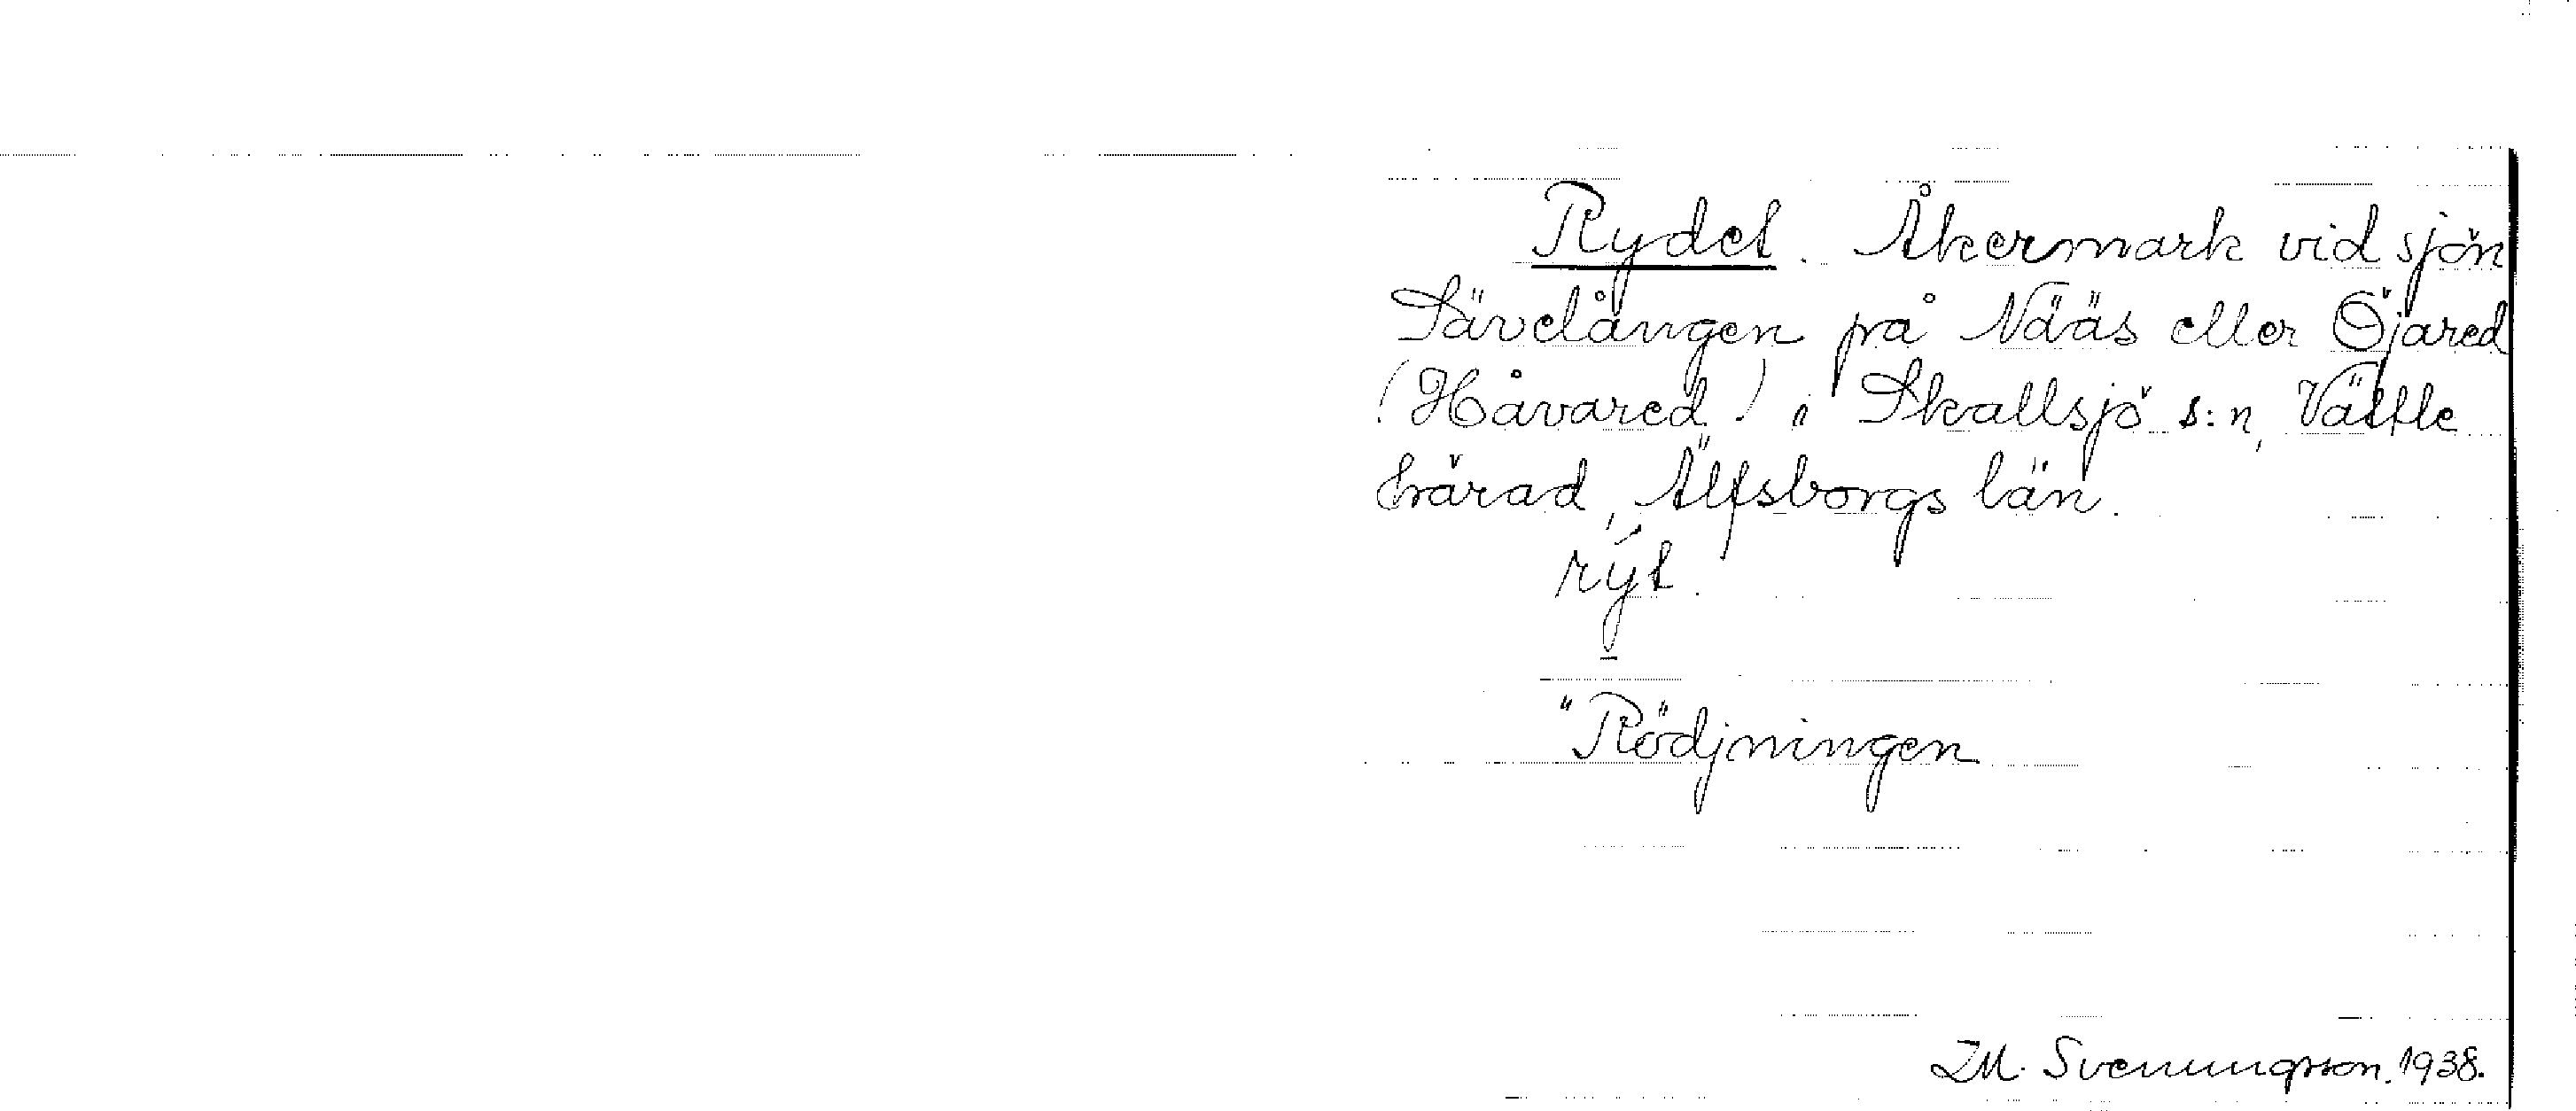 Rydet. Åkermark vid sjön
Sävelången på Nääs eller Öjared
(Håvared) i Skallsjö s:n, Vättle
härad, Älfsborgs län.
rýt.
"Rödjningen
I.M. Svenungsson. 1938.